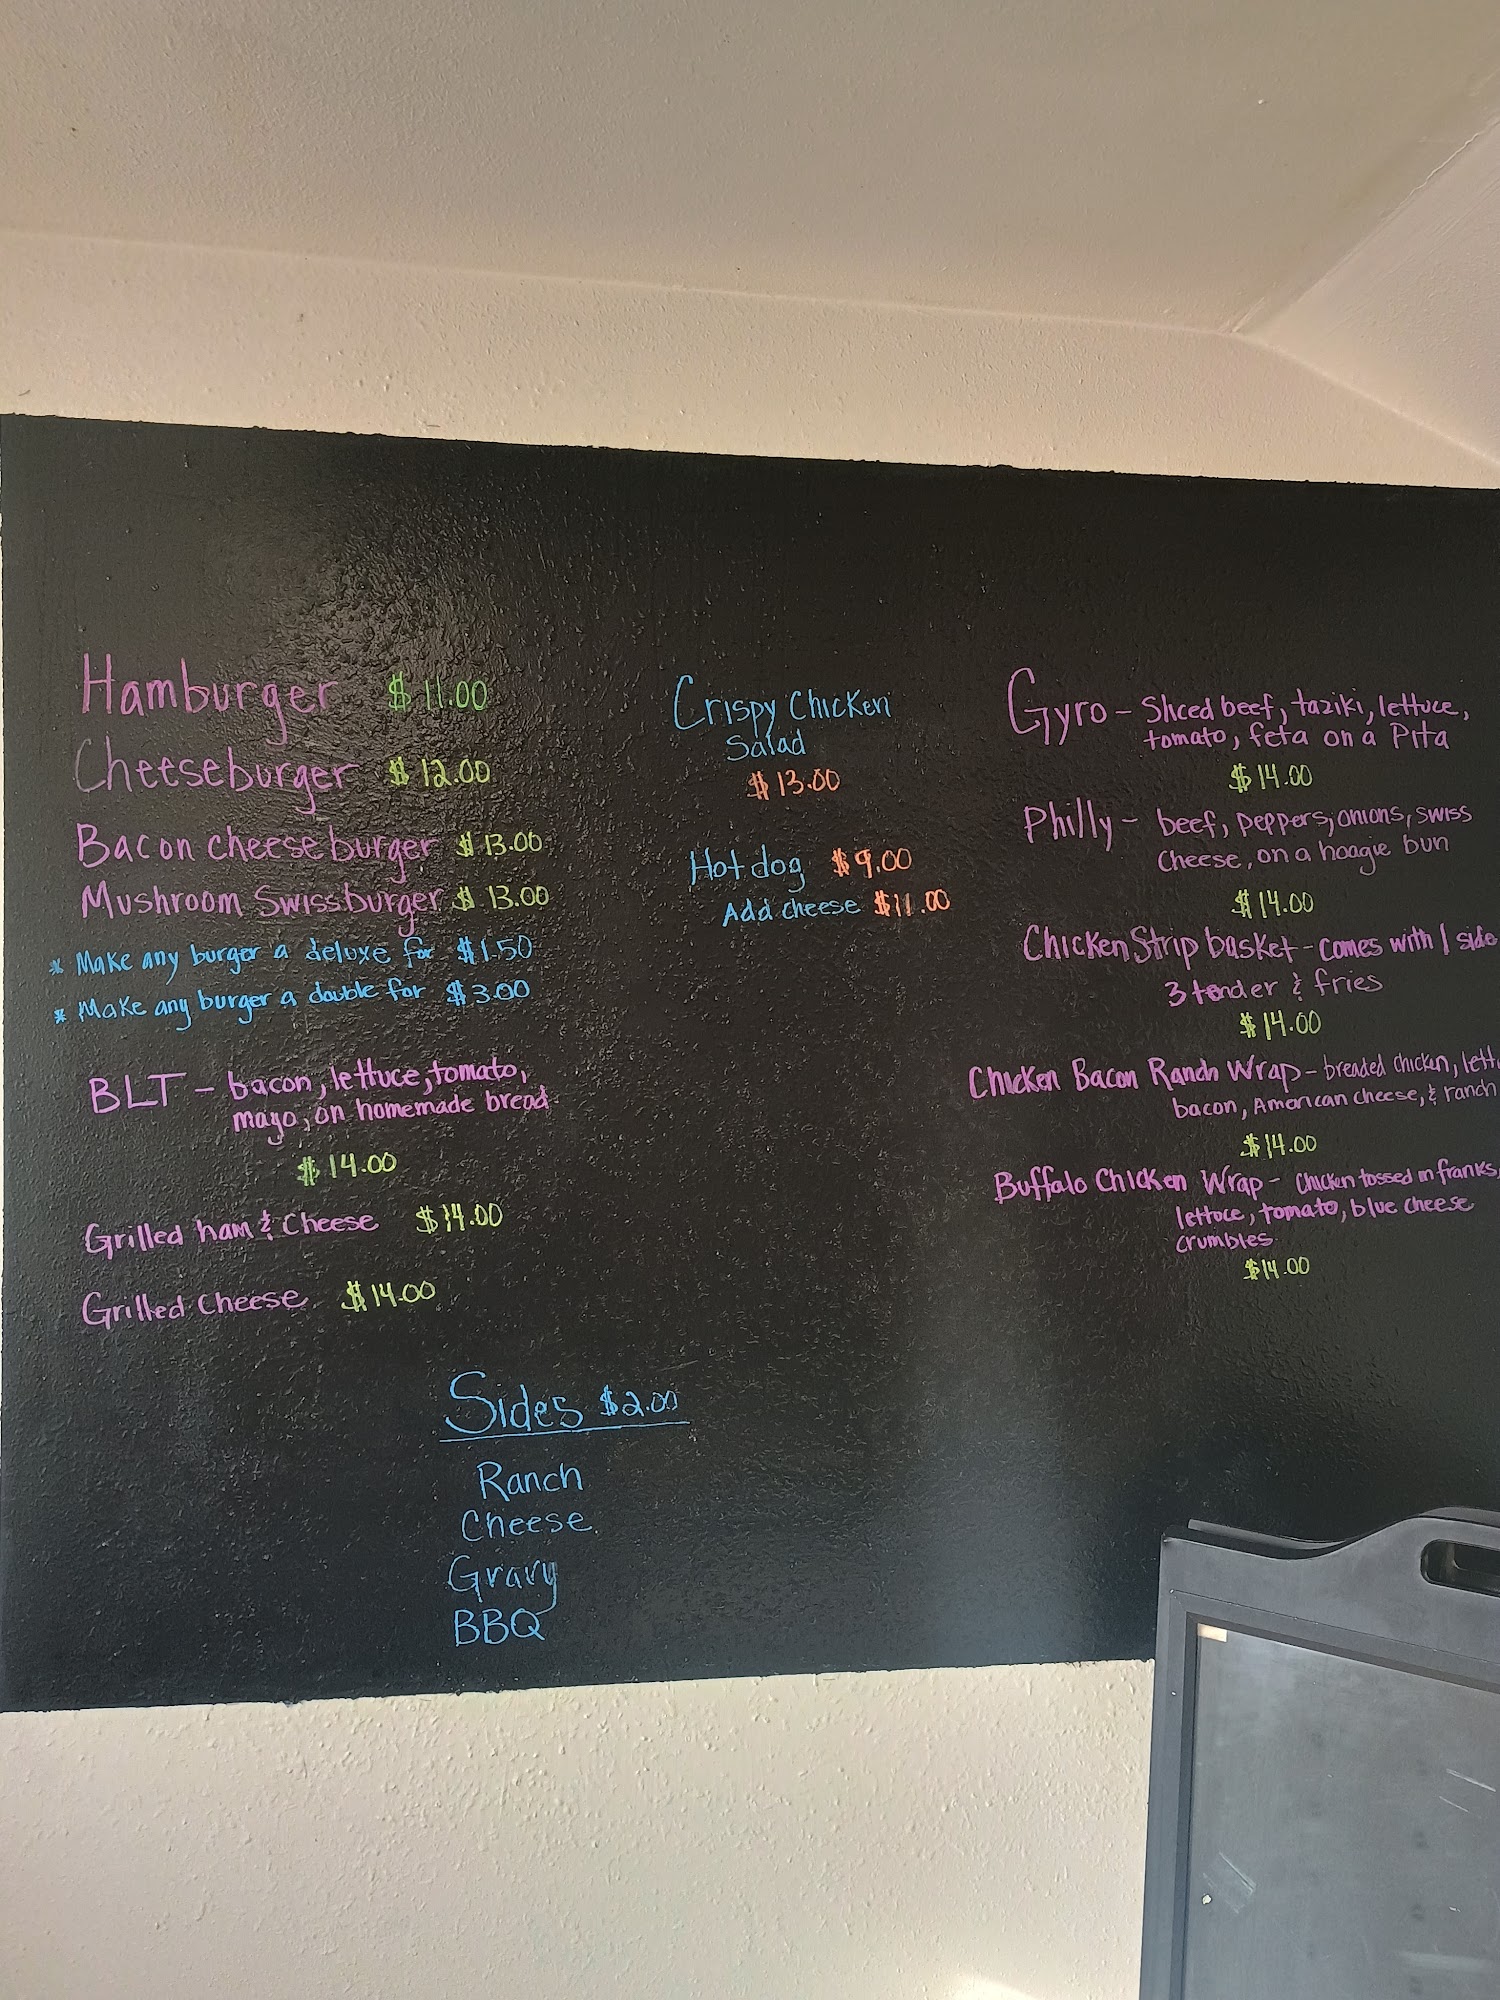 Hamburger $11.00
Cheeseburger $12.00
Bacon cheeseburger $13.00
Mushroom Swissburger $13.00
* Make any burger a deluxe for $1.50
* Make any burger a double for $3.00
BLT - bacon, lettuce, tomato,
mayo, on homemade bread
$14.00
Grilled ham & Cheese $14.00
Grilled Cheese $14.00
Crispy Chicken
Salad
$13.00
Hot dog $9.00
Add cheese $11.00
Gyro - Sliced beef, taziki, lettuce,
tomato, feta on a Pita
$14.00
Philly - beef, peppers, onions, swiss
Cheese, on a hoagie bun
$14.00
Chicken Strip basket - comes with 1 side
3 tender & fries
$14.00
Chicken Bacon Ranch Wrap - breaded chicken, lett
bacon, American cheese, & ranch
$14.00
Buffalo Chicken Wrap - Chicken tossed in franks,
lettuce, tomato, blue cheese
crumbles
$14.00
Sides $2.00
Ranch
Cheese
Gravy
BBQ